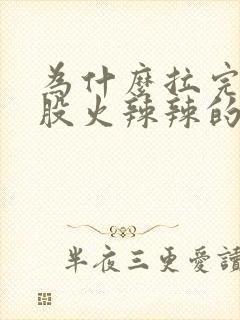 為什麼拉完
股火辣辣的
半夜三更愛讀